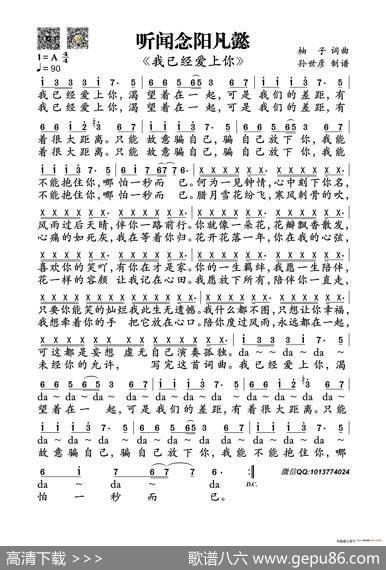 听闻念阳凡懿
《我已经爱上你》
柚 子 词曲
孙世彦 制谱
1=A 4/4
♩=90
我已经爱上你，渴望着在一起，可是我们的差距，有
我已经爱上你，渴望着在一起，可是我们的差距，有
着很大距离。只能 故意骗自己，骗自己放下你，我能
着很大距离。只能 故意骗自己，骗自己放下你，我能
不能抱住你，哪怕一秒而 已。何为一见钟情，心中刻下你名，
不能抱住你，哪怕一秒而 已。腊月雪花纷飞，寒风刺骨的吹，
风雨过后天晴，伴你一路前行。你就像一朵花，花瓣飘香散发，
心痛的如死灰，我在等着你归。花开花落一年，你在我的心弦，
喜欢你的笑吖，有你在才是家。你的一生羁绊，我愿一生陪伴，
花一样的容颜 让我记在心田。我愿放下所有，陪伴你一直走，
只要你能笑的灿烂我此生无遗憾。我什么都不图，只想让你幸福，
我想牵着你的手 把它放在心口。陪你度过风雨，永远都在一起，
可这都是妄想 虚无自己演奏孤独。da～ da～ da～ da
未经你的允许， 写完这首词曲。我已经爱上你，渴
da～ da～ da～ da～ da～ da
望着在一 起，可是我们的差距，有着很大距离。只能
da～ da～ da～ da～ da～ da
故意骗自己，骗自己放下你，我能不能抱住你，哪
da～ da～ da D.C.
怕 一 秒 而 已。
微信QQ:1013774024
高清下载 >>>
歌谱八六 www.gepu86.com